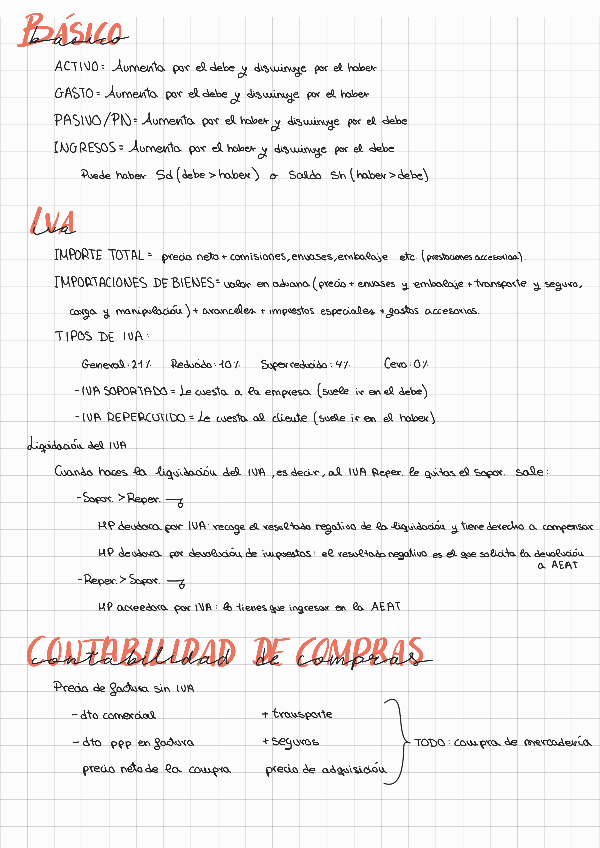 BÁSICO
básico
ACTIVO = Aumenta por el debe y disminuye por el haber
GASTO = Aumenta por el debe y disminuye por el haber
PASIVO/PN = Aumenta por el haber y disminuye por el debe
INGRESOS = Aumenta por el haber y disminuye por el debe
Puede haber Sd (debe > haber) o Saldo Sh (haber > debe)
IVA
iva
IMPORTE TOTAL = precio neto + comisiones, envases, embalaje etc (prestaciones accesorias).
IMPORTACIONES DE BIENES = valor en aduana (precio + envases y embalaje + transporte y seguro,
carga y manipulación) + aranceles + impuestos especiales + gastos accesorios.
TIPOS DE IVA:
General: 21% Reducido: 10% Superreducido: 4% Cero: 0%
- IVA SOPORTADO = Le cuesta a la empresa (suele ir en el debe)
- IVA REPERCUTIDO = Le cuesta al cliente (suele ir en el haber)
Liquidación del IVA
Cuando haces la liquidación del IVA, es decir, al IVA Reper. le quitas el Sopor. sale:
- Sopor. > Reper. →
HP deudora por IVA: recoge el resultado negativo de la liquidación y tiene derecho a compensar
HP deudora por devolución de impuestos: el resultado negativo es el que solicita la devolución
a AEAT
- Reper. > Sopor. →
HP acreedora por IVA: lo tienes que ingresar en la AEAT
CONTABILIDAD DE COMPRAS
contabilidad de compras
Precio de factura sin IVA
- dto comercial + transporte
- dto ppp en factura + seguros } TODO: compra de mercadería
precio neto de la compra precio de adquisición